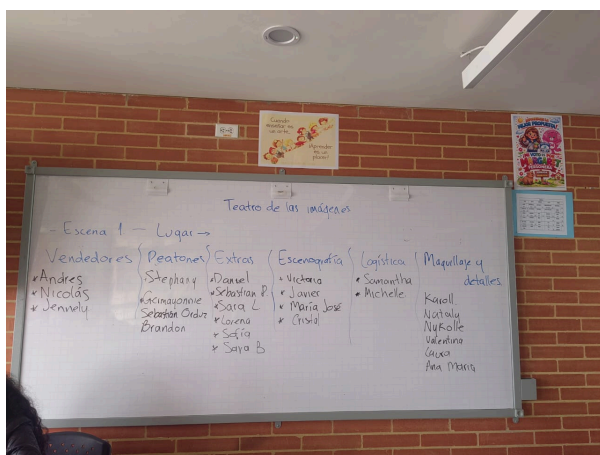 Cuando
enseñar es
un arte...
¡Aprender
es un
placer!
Teatro de las imágenes
- Escena 1 - Lugar →
Vendedores
* Andres
* Nicolás
* Jennely
Peatones
Stephany
Sebastián Orduz
Brandon
Extras
* Daniel
* Sebastian P.
* Sara L
* Lorena
* Sofía
* Sara B
Escenografía
* Victoria
* Javier
* María José
* Cristal
Logística
* Samantha
* Michelle
Maquillaje y
detalles
Karoll
Nataly
Nykolle
Valentina
Laura
Ana María